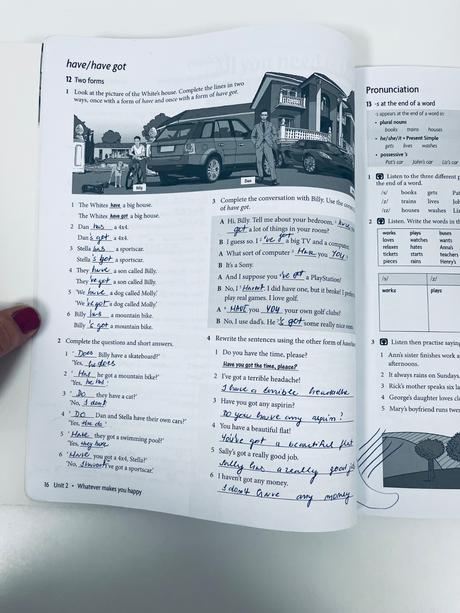 have/have got
12 Two forms
1 Look at the picture of the White's house. Complete the lines in two
ways, once with a form of have and once with a form of have got.
Billy
Dan
1 The Whites have a big house.
The Whites have got a big house.
2 Dan has a 4x4.
Dan's got a 4x4.
3 Stella has a sportscar.
Stella's got a sportscar.
4 They have a son called Billy.
They've got a son called Billy.
5 'We have a dog called Molly.'
'We've got a dog called Molly.'
6 Billy has a mountain bike.
Billy's got a mountain bike.
2 Complete the questions and short answers.
1 'Does Billy have a skateboard?'
'Yes, he does
2 'Has he got a mountain bike?'
'Yes, he has.'
3 'Do they have a cat?'
'No, I don't
4 'Do Dan and Stella have their own cars?'
'Yes,
5 'Have they got a swimming pool?'
'Yes, they have
6 'Have you got a 4x4, Stella?'
'No, I haven't I've got a sportscar.'
16 Unit 2 • Whatever makes you happy
3 Complete the conversation with Billy. Use the
of have got.
A Hi, Billy. Tell me about your bedroom.
got a lot of things in your room?
B I guess so. I 've got a big TV and a computer.
A What sort of computer have you
B It's a Sony.
A And I suppose you 've got a PlayStation?
B No, I haven't. I did have one, but it broke! I
play real games. I love golf.
A Have you your own golf clubs?
B No, I use dad's. He 's got some really nice
4 Rewrite the sentences using the other form of have
1 Do you have the time, please?
Have you got the time, please?
2 I've got a terrible headache!
I have a terrible headache
3 Have you got any aspirin?
Do you have any aspirin?
4 You have a beautiful flat!
You've got a beautiful flat
5 Sally's got a really good job.
Sally has a really good job
6 I haven't got any money.
I don't have any money
Pronunciation
13 -s at the end of a word
-s appears at the end of a word in:
• plural nouns
books trains houses
• he/she/it + Present Simple
gets lives washes
• possessive 's
Pat's car John's car Liz's car
1 Listen to the three different
the end of a word.
/s/ books gets
/z/ trains lives
/ɪz/ houses washes
2 Listen. Write the words in
works plays buses
loves watches wants
relaxes hates Anna's
tickets starts teachers
pieces rains Henry's
/s/ /z/
works plays
3 Listen then practise saying
1 Ann's sister finishes work
2 It always rains on Sundays.
3 Rick's mother speaks six
4 George's daughter loves
5 Mary's boyfriend runs